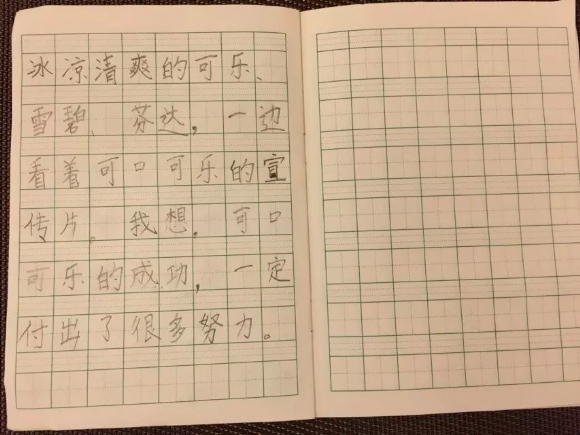 冰凉清爽的可乐、
雪碧、芬达，一边
看着可口可乐的宣
传片。我想。可口
可乐的成功，一定
付出了很多努力。